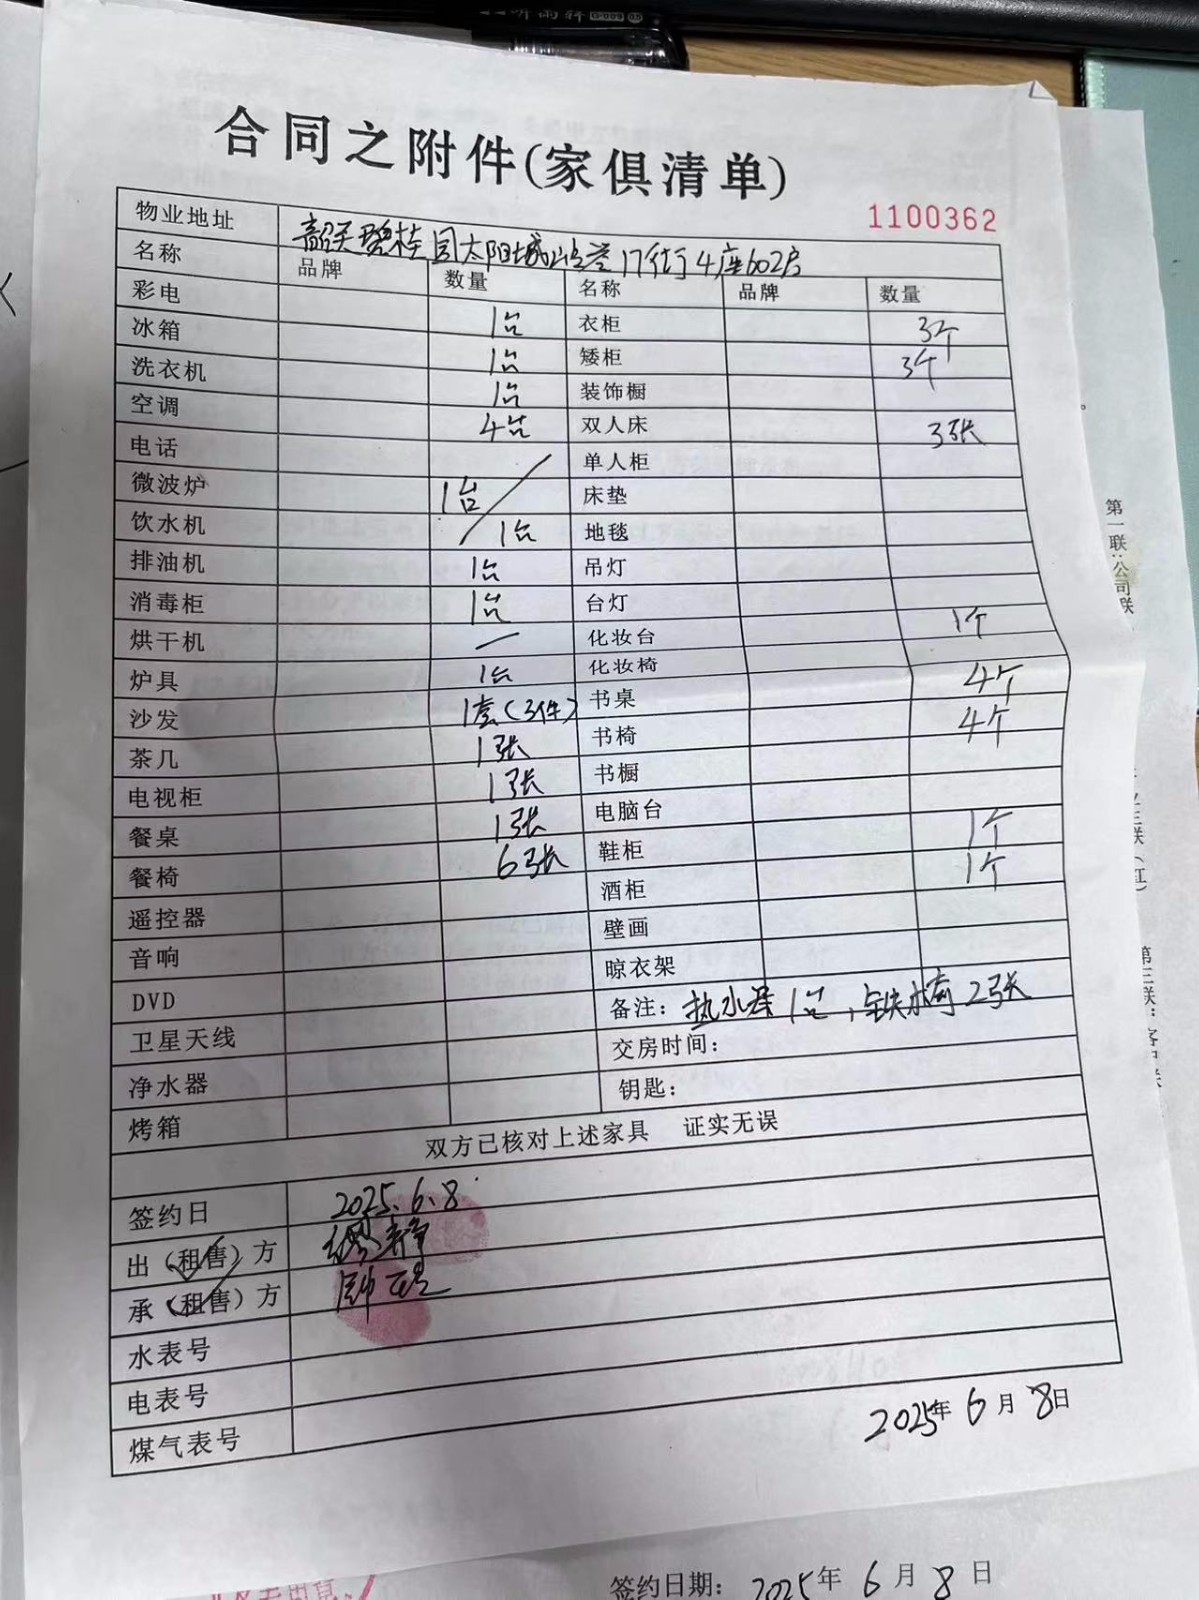 合同之附件(家俱清单)
1100362
物业地址 韶关碧桂园太阳城山台巷17街4座602房
名称 品牌 数量 名称 品牌 数量
彩电 1台 衣柜 3个
冰箱 1台 矮柜 3个
洗衣机 1台 装饰橱
空调 4台 双人床 3张
电话 单人柜
微波炉 1台 床垫
饮水机 1台 地毯
排油机 1台 吊灯
消毒柜 1台 台灯
烘干机 化妆台 1个
炉具 1台 化妆椅
沙发 1套(3件) 书桌 4个
茶几 1张 书椅 4个
电视柜 1张 书橱
餐桌 1张 电脑台
餐椅 6张 鞋柜 1个
遥控器 酒柜 1个
音响 壁画
DVD 晾衣架
卫星天线 备注：热水器1台，铁水椅2张
净水器 交房时间：
烤箱 钥匙：
双方已核对上述家具 证实无误
签约日 2025.6.8
出（租售）方
承（租售）方
水表号
电表号
煤气表号
2025年6月8日
第一联：公司联
第三联：客户联
签约日期： 2025年6月8日